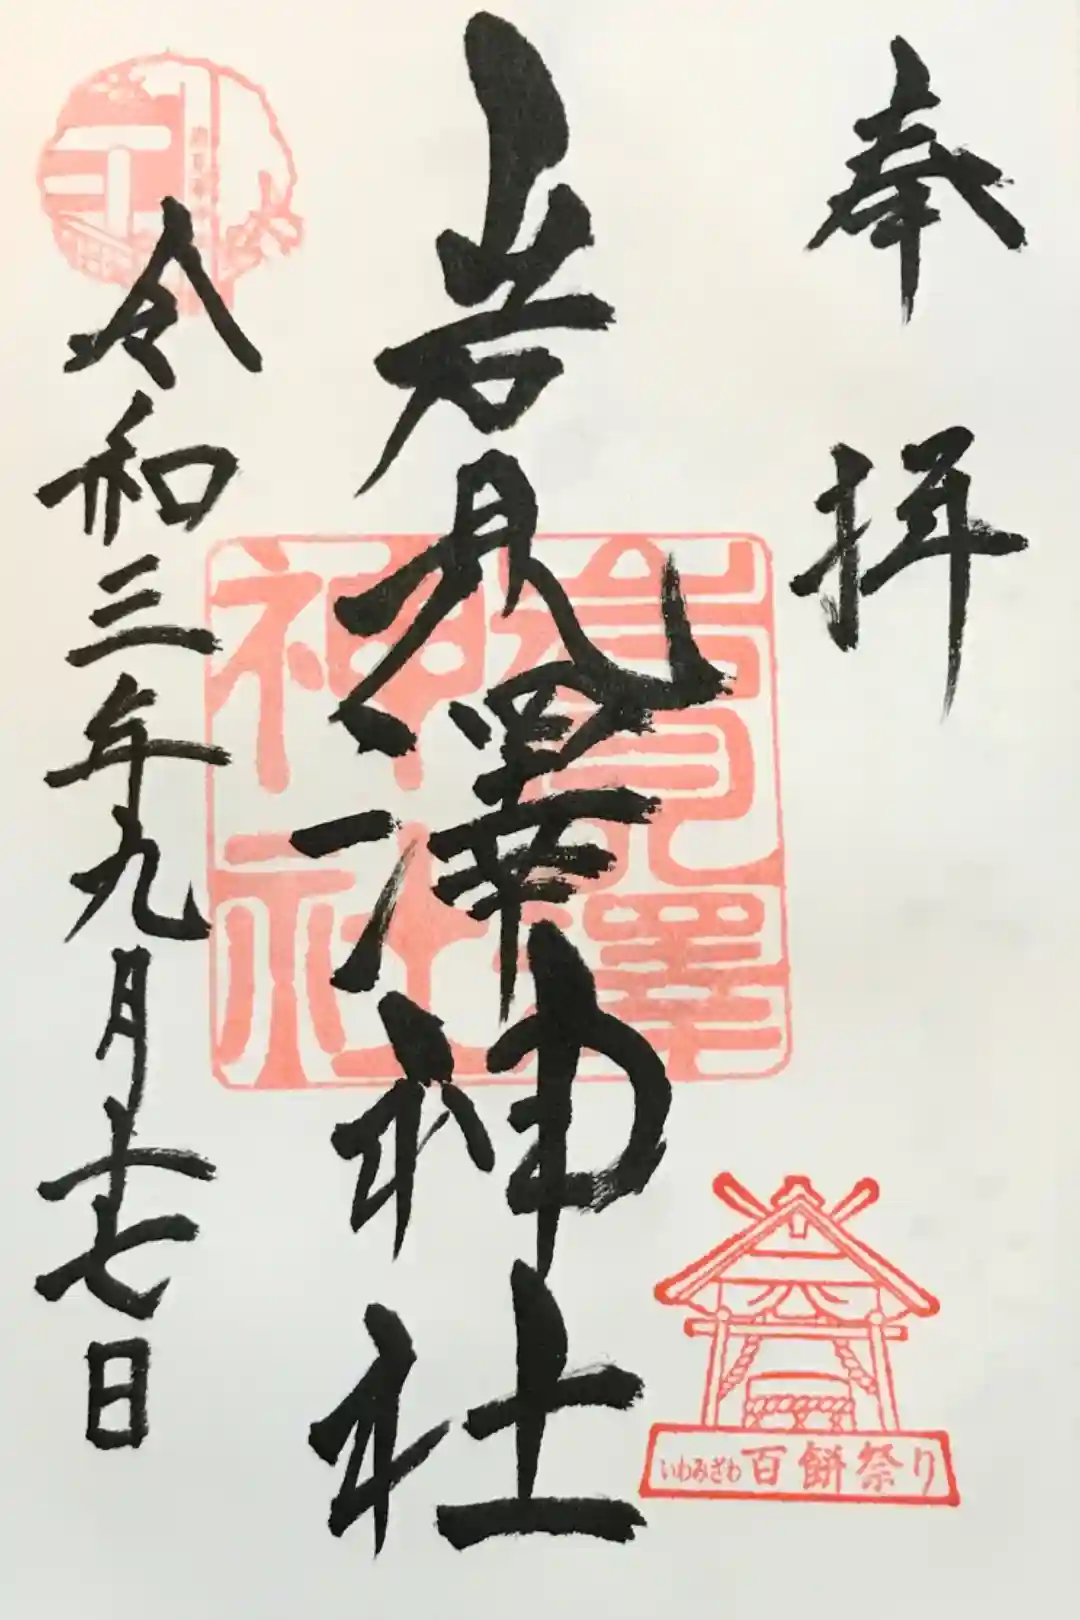 奉拝
岩見澤神社
令和三年九月十七日
岩見澤
神社
いわみざわ 百餅祭り